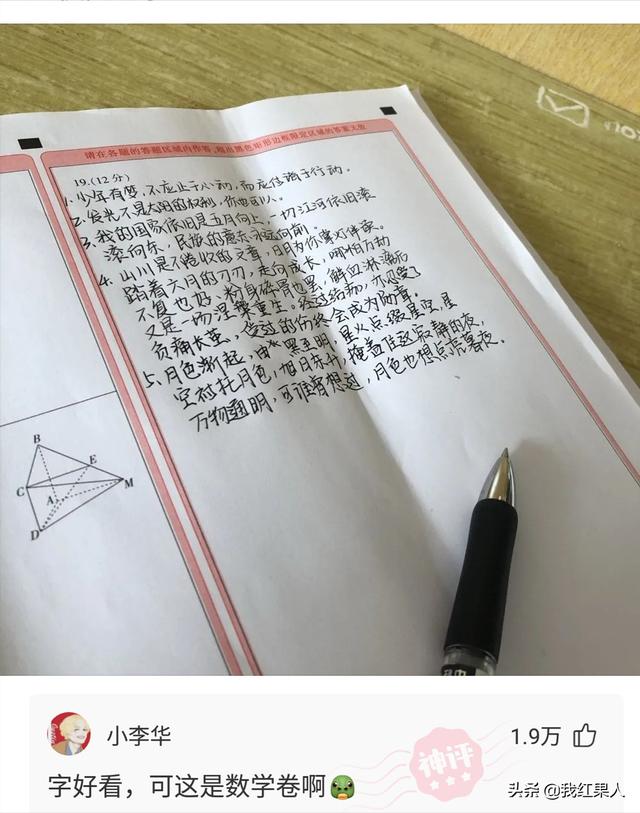 请在各题的答题区域内作答,超出黑色矩形边框限定区域的答案无效
19.(12分)
1、少年有梦,不应止于心动,而应付诸于行动。
2、发光不是太阳的权利,你也可以。
3、我的国家依旧是五月向上,一切江河依旧滚
滚向东,民族的意志永远向前。
4、山川是不卷收的文章,日月为你掌灯伴读。
踏着六月的刀刃,走向成长,哪怕万劫
不复也好、粉身碎骨也罢,鲜血淋漓后
又是一场涅槃重生。经过结痂,亦见惯了
负痛长茧,受过的伤终会成为勋章。
5、月色渐起,由黑至明,星火点缀星空,星
空衬托月色,旭日东升,掩盖住这寂静的夜,
万物通明,可谁曾想过,月色也想点亮暮夜。
B
E
C
A
M
D
小李华
1.9万
字好看,可这是数学卷啊
神评
头条 @我红果人